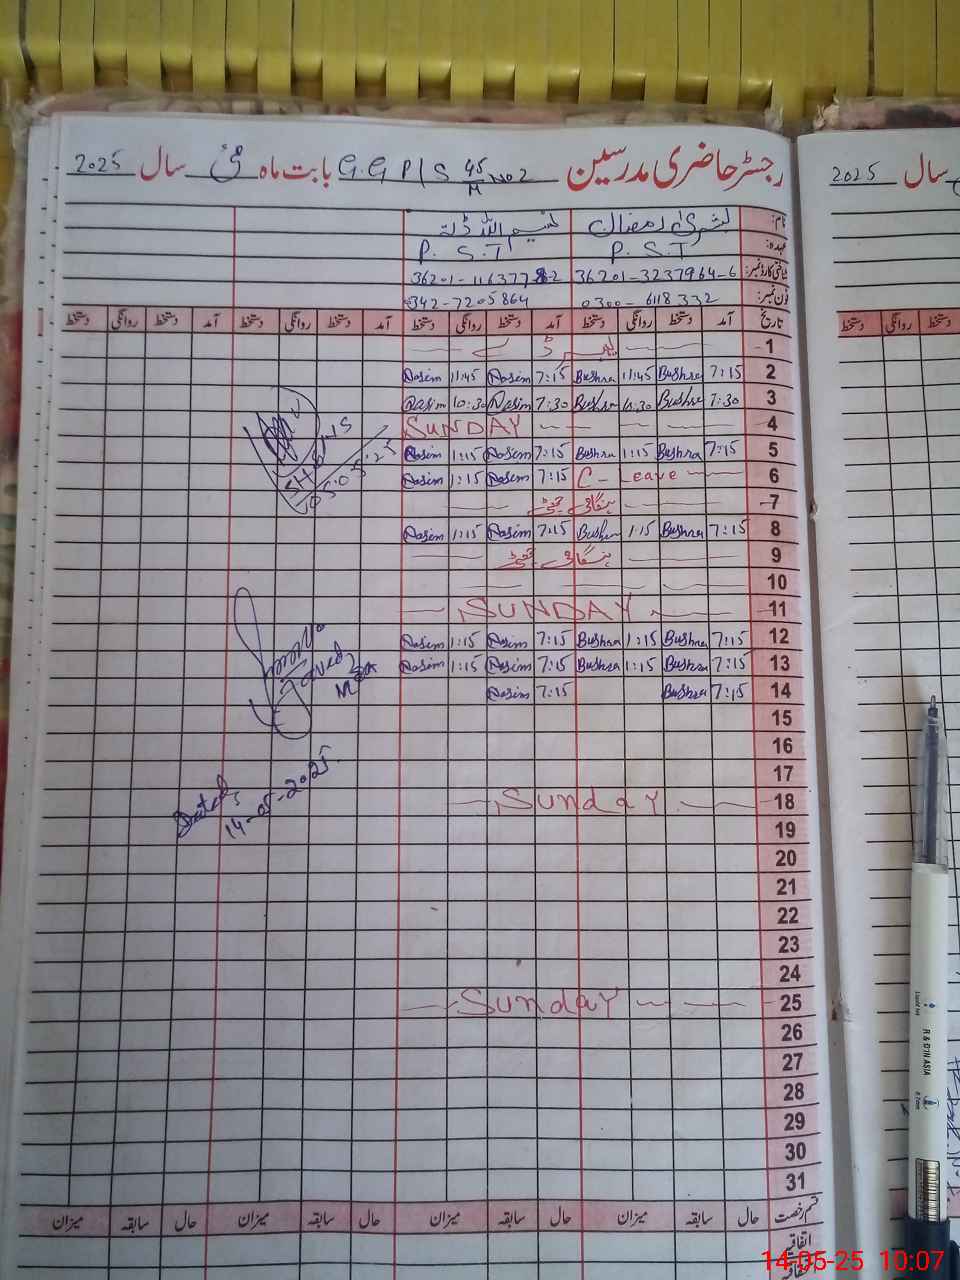 رجسٹر حاضری مدرسین G.G P/S 45/M No 2 بابت ماہ مئی سال 2025
نام: بشریٰ رمضان نسیم اللہ ڈتہ
عہدہ: P.S.T P.S.T
شناختی کارڈ نمبر: 36201-3237964-6
فون نمبر: 0300-6118332 0342-7205864
تاریخ آمد دستخط روانگی دستخط آمد دستخط روانگی دستخط آمد دستخط روانگی دستخط آمد دستخط روانگی دستخط
1
2 7:15 Bushra 11:45 Bushra 7:15 Nasim 11:45 Nasim
3 7:30 Bushra 10:30 Bushra 7:30 Nasim 10:30 Nasim
4 SUNDAY
5 7:15 Bushra 1:15 Bushra 7:15 Nasim 1:15 Nasim
6 C-Leave 7:15 Nasim 1:15 Nasim
7 ہنگامی چھٹی
8 7:15 Bushra 1:15 Bushra 7:15 Nasim 1:15 Nasim
9 ہنگامی چھٹی
10
11 SUNDAY
12 7:15 Bushra 1:15 Bushra 7:15 Nasim 1:15 Nasim
13 7:15 Bushra 1:15 Bushra 7:15 Nasim 1:15 Nasim
14 7:15 Bushra 7:15 Nasim
15
16
17
18 Sunday
19
20
21
22
23
24
25 Sunday
26
27
28
29
30
31
قسم رخصت حال سابقہ میزان حال سابقہ میزان حال سابقہ میزان حال سابقہ میزان
اتفاقیہ
05.05.25
Javed
Dated:
14-05-2025.
2025 سال
دستخط روانگی دستخط
R & G IN ASIA
14-05-25 10:07